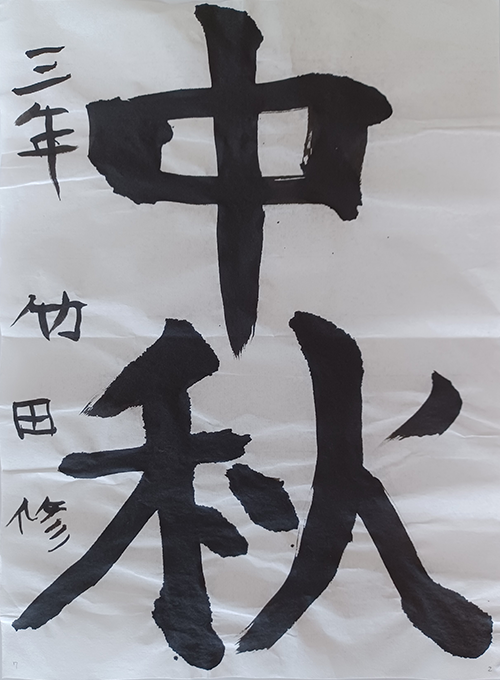 中秋
三年 竹田修